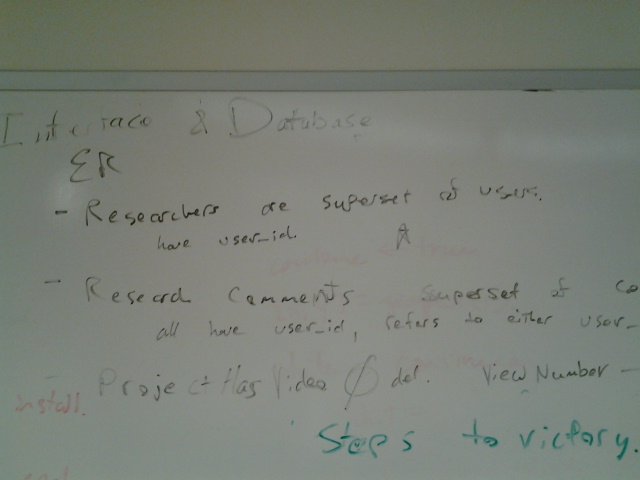 Interface & Database
ER
- Researchers are superset of users.
have user_id.
- Research Comments superset of Co
all have user_id, refers to either user_
- Project Has Video ∅ del. View Number -
install.
Steps to victory.